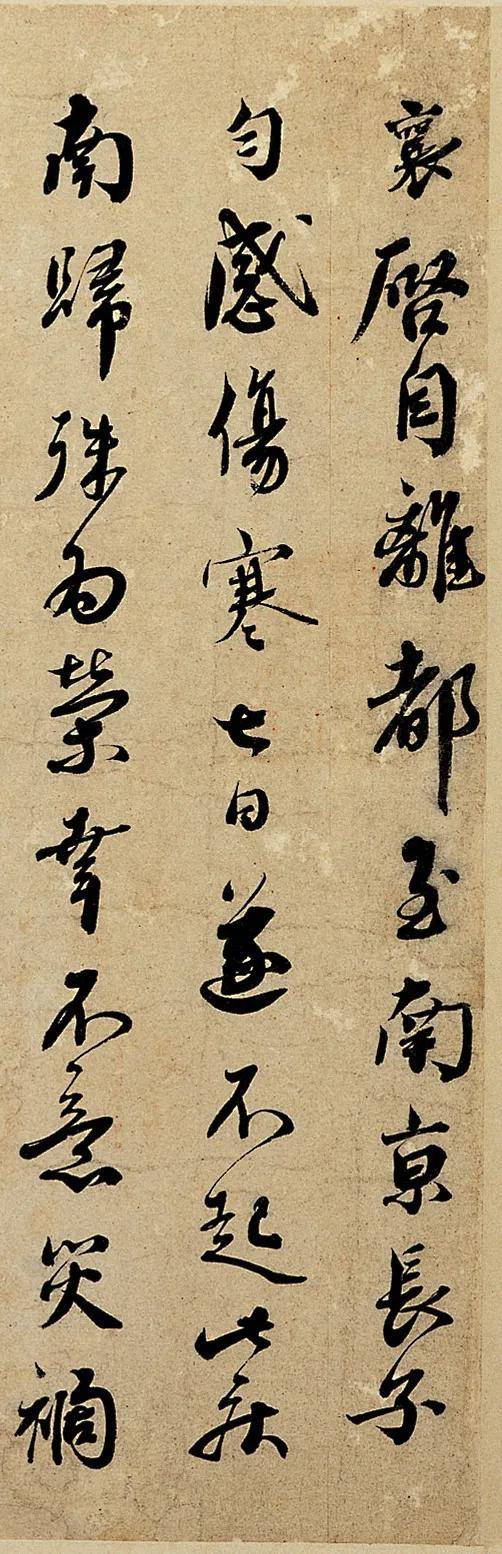 襄啓自離都至南京長子
勻感傷寒七日遂不起此疾
南歸殊為榮幸不意災禍